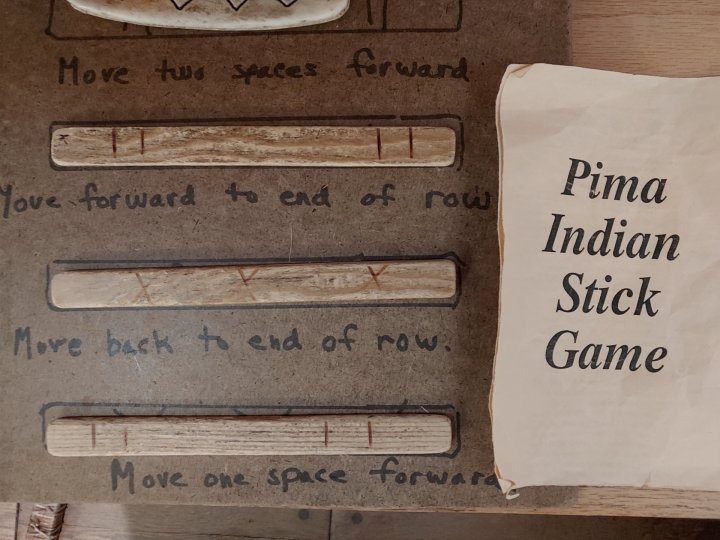 Move two spaces forward
Move forward to end of row
Move back to end of row.
Move one space forward
Pima
Indian
Stick
Game